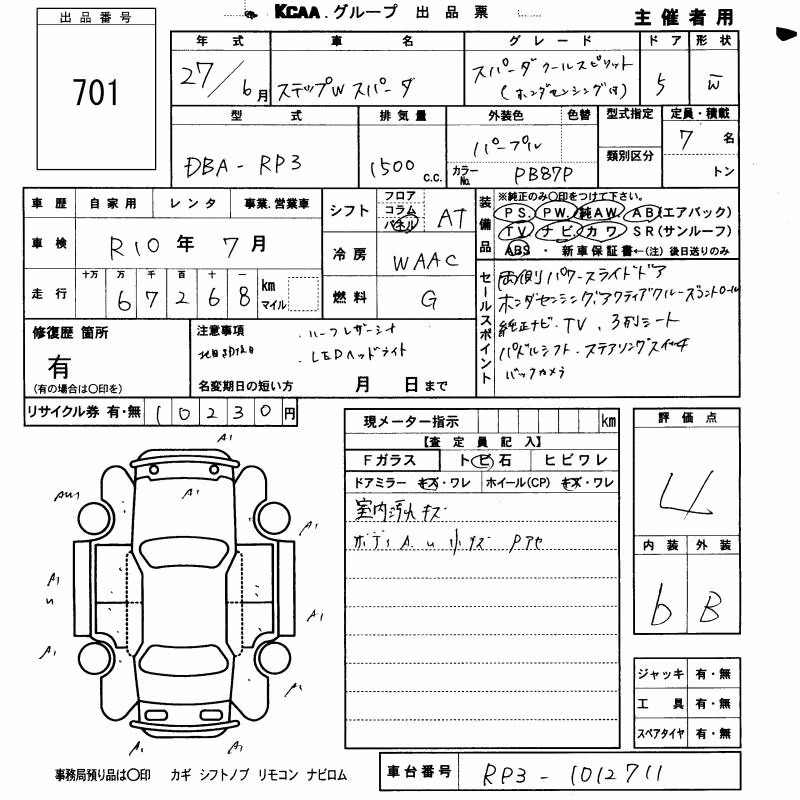 KCAA.グループ 出品票
主催者用
出品番号
701
年式 車名 グレード ドア 形状
27/6月 ステップW スパーダ スパーダ クールスピリット (ホンダセンシング付) 5 W
型式 排気量 外装色 色替 型式指定 定員・積載
DBA-RP3 1500 c.c. パープル 類別区分 7名
カラーNo. PB87P トン
車歴 自家用 レンタ 事業.営業車
車検 R10年7月
走行 十万 万 千 百 十 一
67268 km マイル
シフト フロア コラム パネル AT
冷房 WAAC
燃料 G
装備品 ※純正のみ〇印をつけて下さい。
PS. PW. 純AW. AB(エアバック)
TV ナビ カワ SR(サンルーフ)
ABS ・ 新車保証書←(注) 後日送りのみ
セールスポイント
両側パワースライドドア
ホンダセンシング アクティブクルーズコントロール
純正ナビ・TV、3列シート
パドルシフト・ステアリングスイッチ
バックカメラ
修復歴 箇所
有
(有の場合は〇印を)
注意事項
・ハーフレザーシート
・LEDヘッドライト
名変期日の短い方 月 日まで
リサイクル券 有・無 10230円
現メーター指示 km
【査定員記入】
Fガラス トビ石 ヒビワレ
ドアミラー キズ・ワレ ホイール(CP) キズ・ワレ
室内汚れ キズ
ボディ A.u 小キズ Pアセ
評価点
4
内装 外装
b B
ジャッキ 有・無
工具 有・無
スペアタイヤ 有・無
A1
A1
AW1
A1
A1
u
A1
A1
A1
A1
A1
事務局預り品は〇印 カギ シフトノブ リモコン ナビロム
車台番号 RP3-1012711